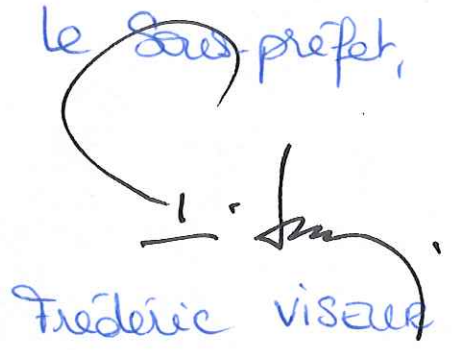 Le Sous-préfet,
Frédéric VISEUR